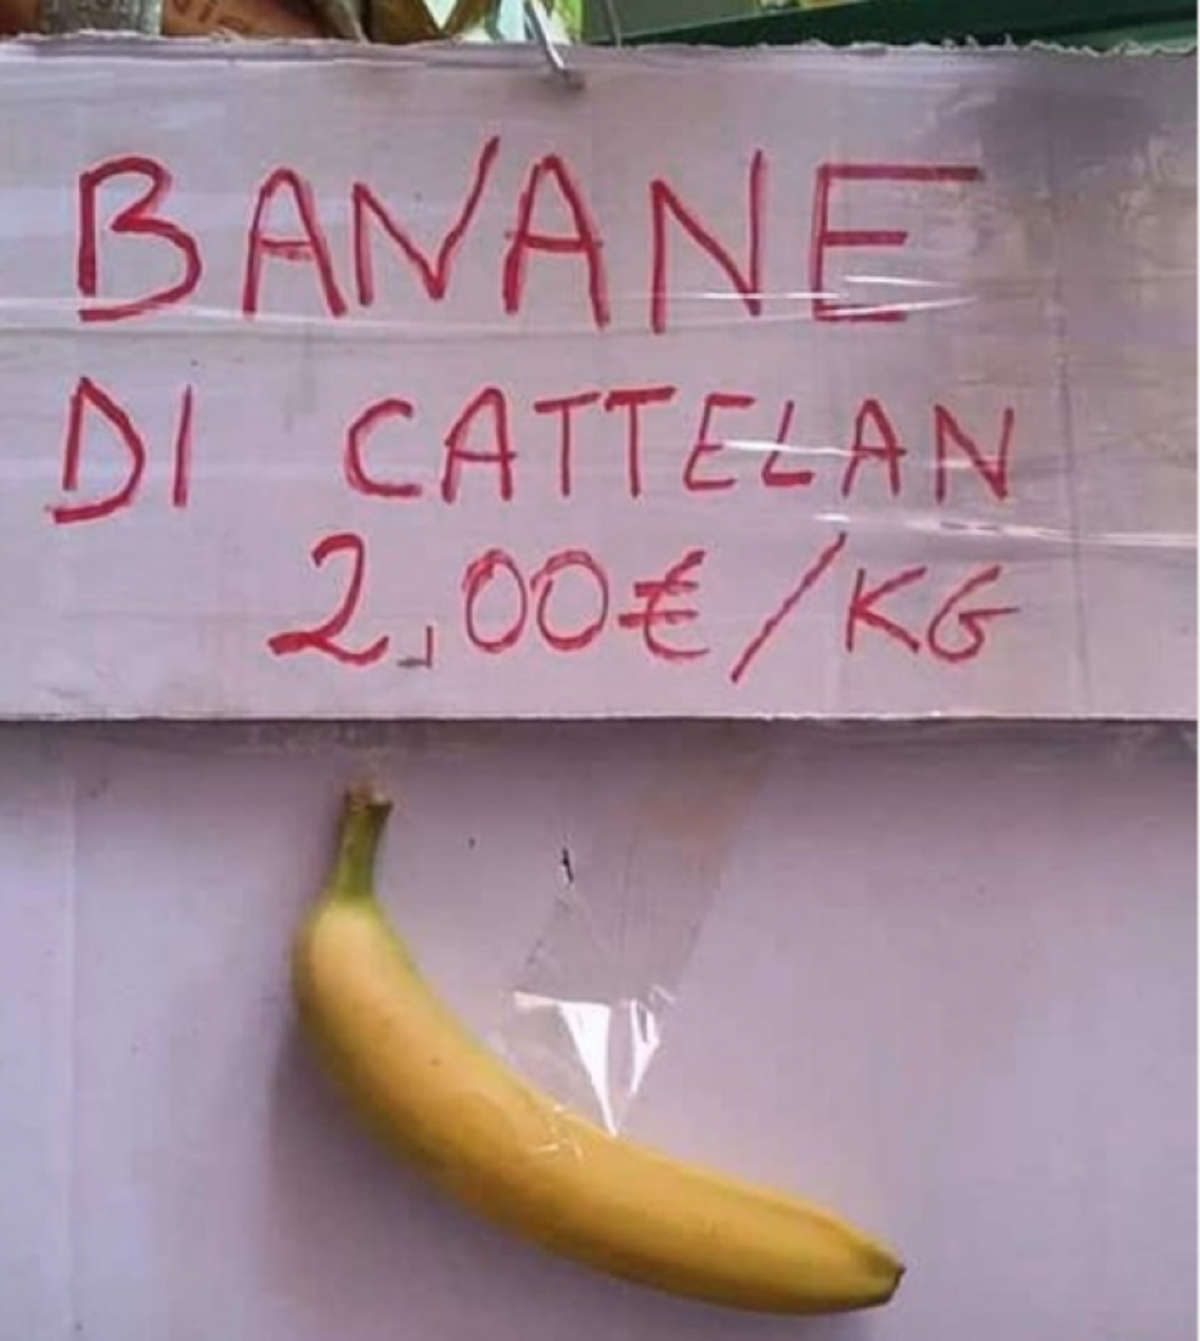 BANANE
DI CATTELAN
2,00€/KG